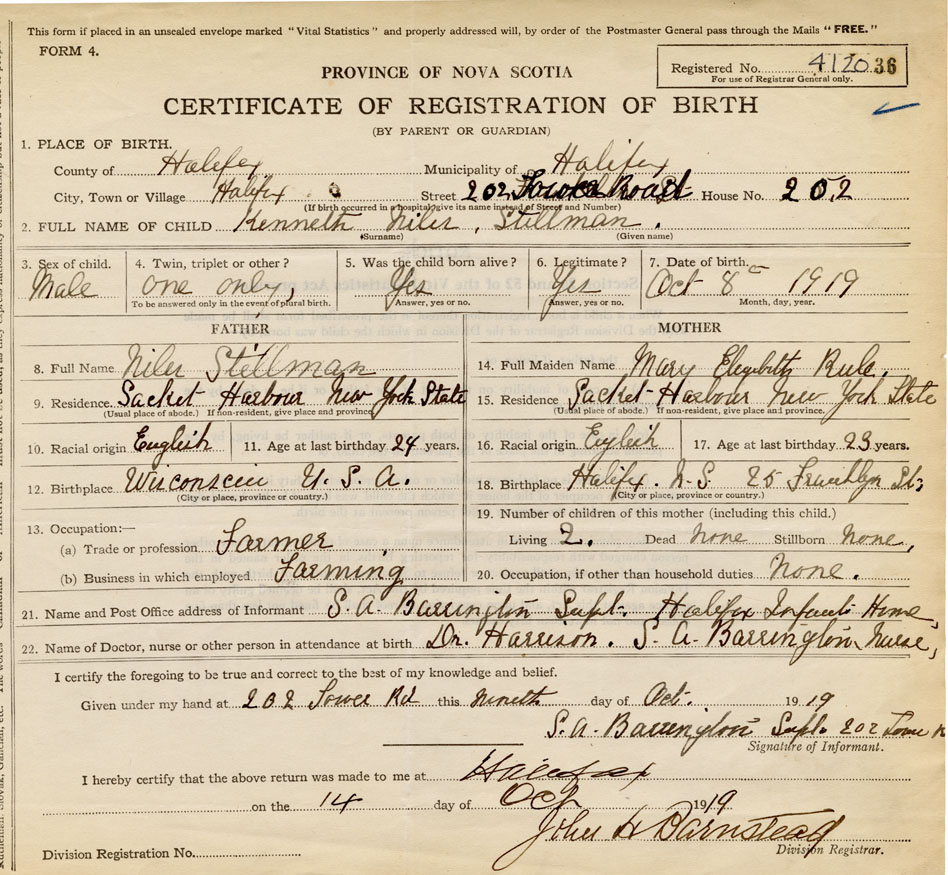 This form if placed in an unsealed envelope marked "Vital Statistics" and properly addressed will, by order of the Postmaster General pass through the Mails "FREE."
FORM 4.
Registered No. 4120 36
For use of Registrar General only.
PROVINCE OF NOVA SCOTIA
CERTIFICATE OF REGISTRATION OF BIRTH
(BY PARENT OR GUARDIAN)
1. PLACE OF BIRTH.
County of Halifax Municipality of Halifax
City, Town or Village Halifax Street 202 Tower Road House No. 202
(If birth occurred in a hospital give its name instead of Street and Number)
2. FULL NAME OF CHILD Kenneth Niler, Stellman.
(Surname) (Given name)
3. Sex of child. Male
4. Twin, triplet or other? one only,
To be answered only in the event of plural birth.
5. Was the child born alive? Yes
Answer, yes or no.
6. Legitimate? Yes
Answer, yes or no.
7. Date of birth. Oct 8 1919
Month, day, year.
FATHER
8. Full Name Niler Stellman
9. Residence. Sacket Harbour New York State
(Usual place of abode.) If non-resident, give place and province.
10. Racial origin English 11. Age at last birthday 24 years.
12. Birthplace Wisconsin U. S. A.
(City or place, province or country.)
13. Occupation:—
(a) Trade or profession Farmer
(b) Business in which employed Farming
MOTHER
14. Full Maiden Name Mary Elizabeth Rule.
15. Residence Sacket-Harbour New York State
(Usual place of abode.) If non-resident, give place and province.
16. Racial origin English 17. Age at last birthday 23 years.
18. Birthplace Halifax. N.S. 25 St.
(City or place, province or country.)
19. Number of children of this mother (including this child.)
Living 2. Dead None Stillborn None,
20. Occupation, if other than household duties None.
21. Name and Post Office address of Informant S. A. Barrington Supt. Halifax Infants Home,
22. Name of Doctor, nurse or other person in attendance at birth Dr. Harrison. S. A. Barrington, Nurse,
I certify the foregoing to be true and correct to the best of my knowledge and belief.
Given under my hand at 202 Tower Rd this Nineth day of Oct. 1919
S. A. Barrington Supt. 202 Tower R
Signature of Informant.
I hereby certify that the above return was made to me at Halifax
on the 14 day of Oct 1919
John H Barnstead
Division Registrar.
Division Registration No.